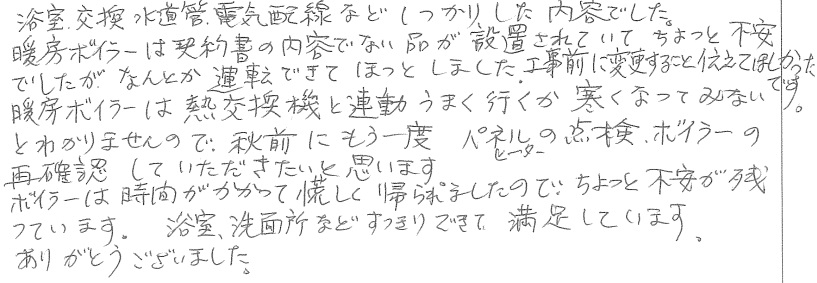 浴室、交換、水道管、電気配線などしっかりした内容でした。
暖房ボイラーは契約書の内容でない品が設置されていてちょっと不安
でしたが、なんとか運転できてほっとしました。工事前に変更すること伝えてほしかったです。
暖房ボイラーは熱交換機と連動うまく行くか寒くなってみない
とわかりませんので、秋前にもう一度 パネルヒーターの点検、ボイラーの
再確認していただきたいと思います
ボイラーは時間がかかって慌しく帰られましたので、ちょっと不安が残
っています。 浴室、洗面所などすっきりできて満足しています。
ありがとうございました。